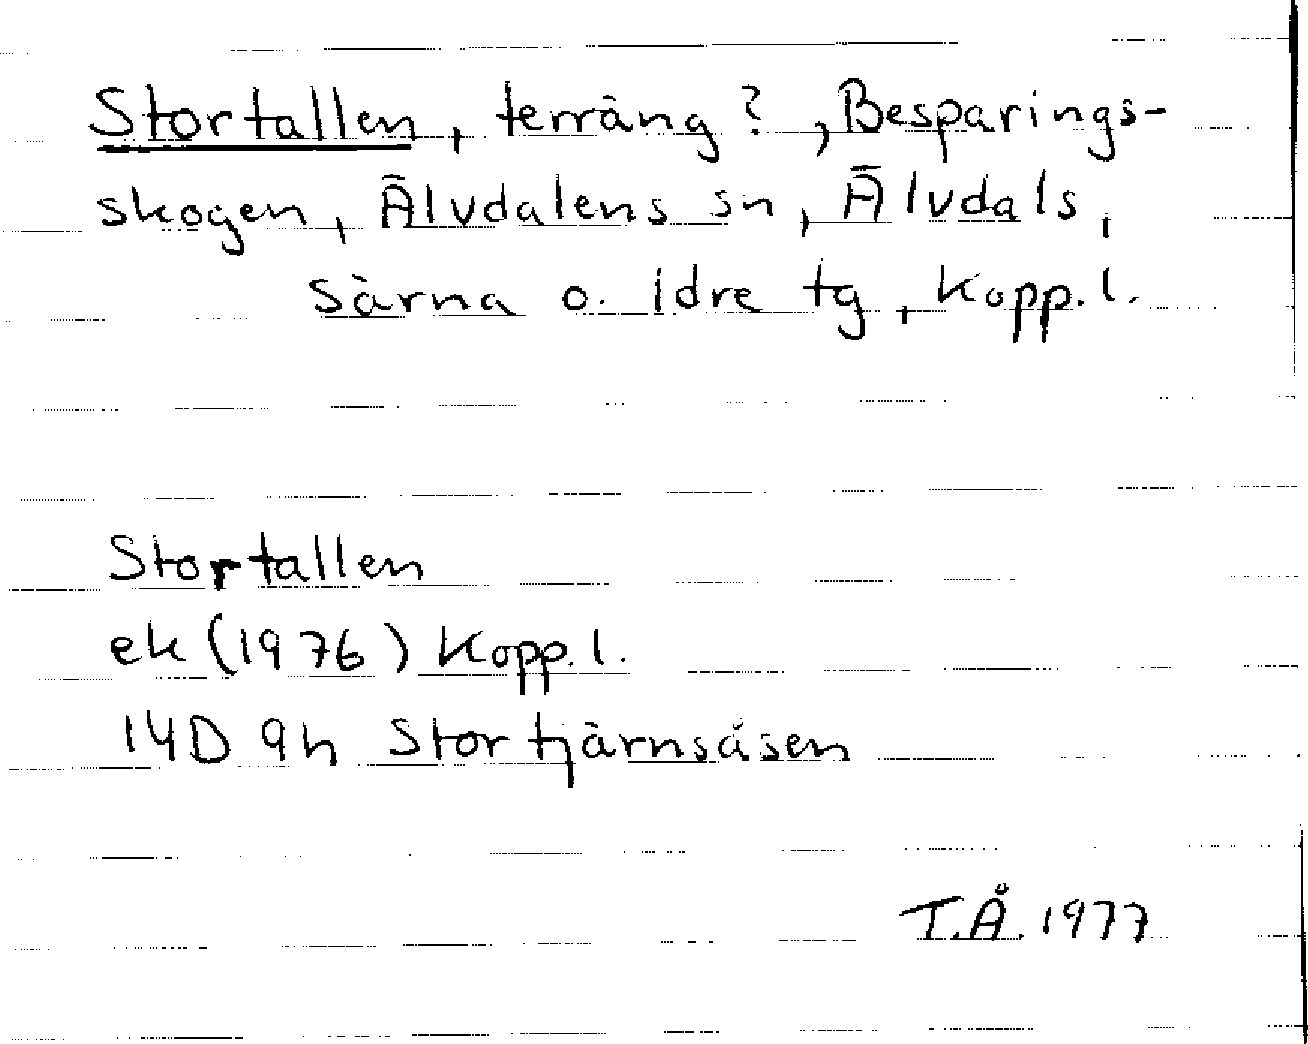 Stortallen, terräng?, Besparings-
skogen, Älvdalens sn, Älvdals,
Särna o. Idre tg, Kopp.l.
Stortallen
ek (1976) Kopp.l.
14D 9h Stortjärnsåsen
T.Å. 1977